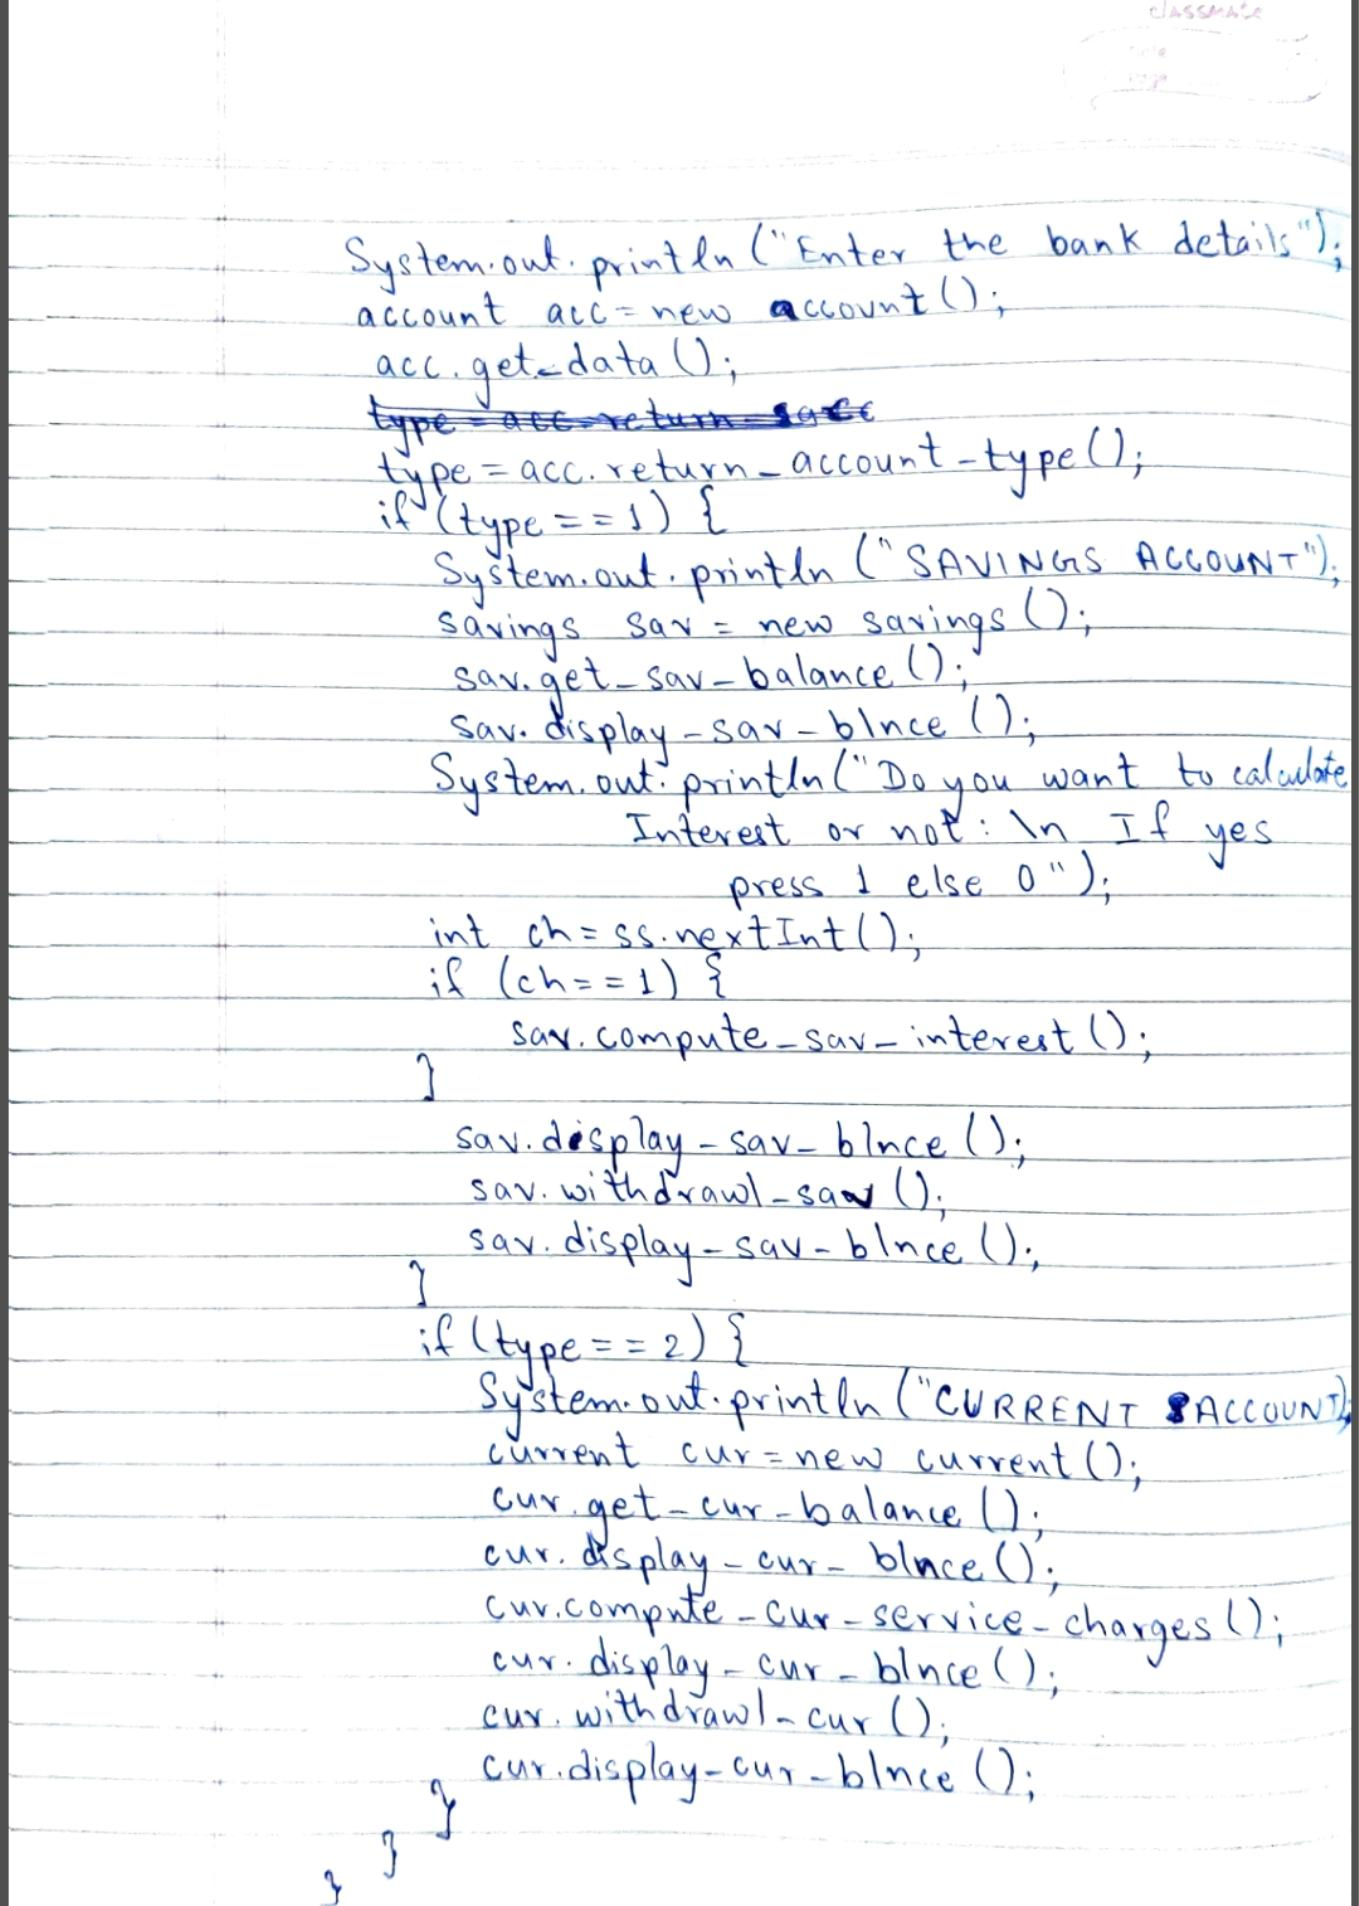 classmate
Date
Page
System.out.println ("Enter the bank details");
account acc = new account();
acc.get_data();
type = acc.return_account_type();
if (type == 1) {
System.out.println ("SAVINGS ACCOUNT");
savings sav = new savings();
sav.get_sav_balance();
sav.display_sav_blnce();
System.out.println("Do you want to calculate
Interest or not: \n If yes
press 1 else 0");
int ch = ss.nextInt();
if (ch == 1) {
sav.compute_sav_interest();
}
sav.display_sav_blnce();
sav.withdrawl_sav();
sav.display_sav_blnce();
}
if (type == 2) {
System.out.println ("CURRENT ACCOUNT");
current cur = new current();
cur.get_cur_balance();
cur.display_cur_blnce();
cur.compute_cur_service_charges();
cur.display_cur_blnce();
cur.withdrawl_cur();
cur.display_cur_blnce();
}
}
}